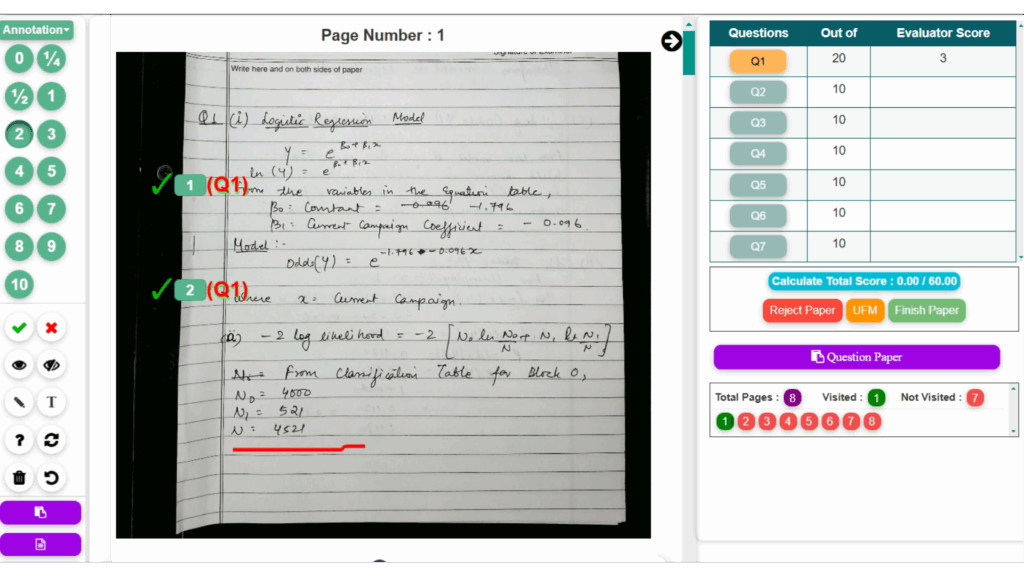 Annotation
0 ¼
½ 1
2 3
4 5
6 7
8 9
10
T
?
Page Number : 1
Write here and on both sides of paper
Q1 (i) Logistic Regression Model
Y = e^β₀+β₁x
ln (Y) = e^β₀+β₁x
1 (Q1)
From the variables in the Equation table,
β₀: Constant = -0.096 -1.796
β₁: Current Campaign Coefficient = - 0.096.
Model :-
Odds(Y) = e^-1.796 - 0.096x
2 (Q1)
Where x = Current Campaign.
(ii) -2 log likelihood = -2 [N₀ ln N₀/N + N₁ ln N₁/N]
From Classification Table for Block 0,
N₀ = 4000
N₁ = 521
N = 4521
Questions Out of Evaluator Score
Q1 20 3
Q2 10
Q3 10
Q4 10
Q5 10
Q6 10
Q7 10
Calculate Total Score : 0.00 / 60.00
Reject Paper UFM Finish Paper
Question Paper
Total Pages : 8 Visited : 1 Not Visited : 7
1 2 3 4 5 6 7 8